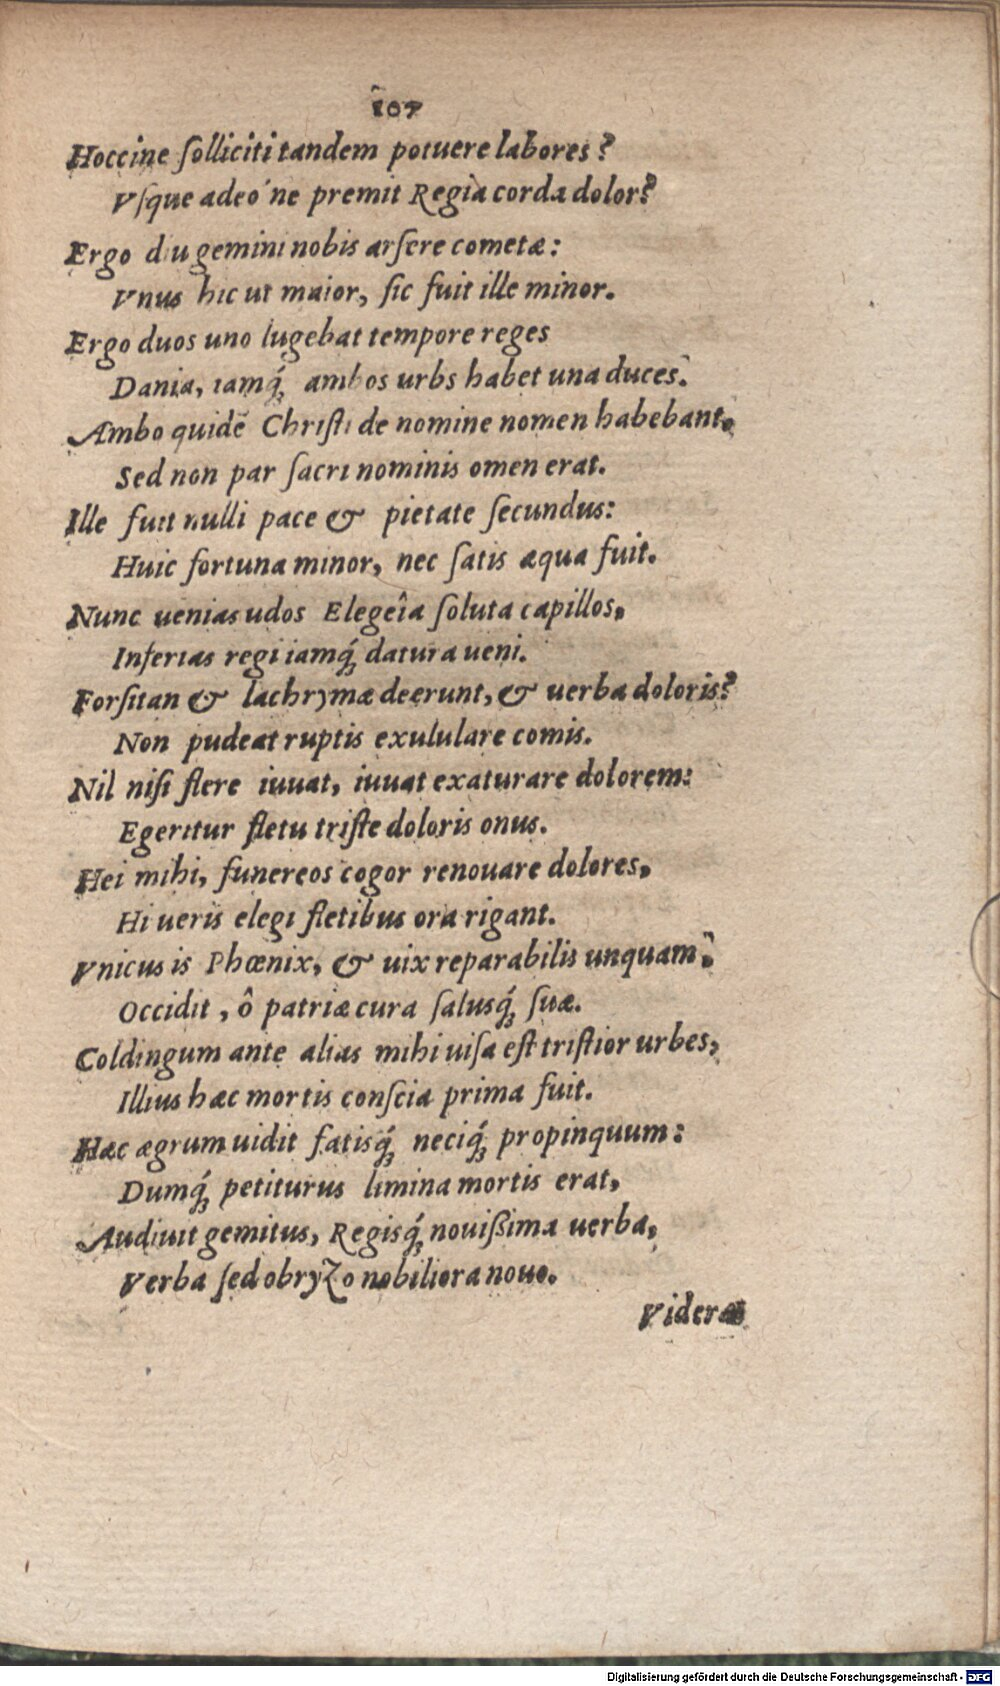 107
Hoccine ſolliciti tandem potuere labores?
Vſque adeò ne premit Regia corda dolor?
Ergo diu gemini nobis arſere cometæ:
Vnus hic ut maior, ſic fuit ille minor.
Ergo duos uno lugebat tempore reges
Dania, iamq́; ambos urbs habet una duces.
Ambo quidē Chriſti de nomine nomen habebant,
Sed non par ſacri nominis omen erat.
Ille fuit nulli pace & pietate ſecundus:
Huic fortuna minor, nec ſatis æqua fuit.
Nunc uenias udos Elegeîa ſoluta capillos,
Inferias regi iamq́; datura ueni.
Forſitan & lachrymæ deerunt, & uerba doloris?
Non pudeat ruptis exululare comis.
Nil niſi flere iuuat, iuuat exaturare dolorem:
Egeritur fletu triſte doloris onus.
Hei mihi, funereos cogor renouare dolores,
Hi ueris elegi fletibus ora rigant.
Vnicus is Phœnix, & uix reparabilis unquam,
Occidit, ô patriæ cura ſalusq́; ſuæ.
Coldingum ante alias mihi uiſa eſt triſtior urbes,
Illius hæc mortis conſcia prima fuit.
Hæc ægrum uidit fatisq́; neciq́; propinquum:
Dumq́; petiturus limina mortis erat,
Audiuit gemitus, Regisq́; nouißima uerba,
Verba ſed obryzo nobiliora nouo.
Digitalisierung gefördert durch die Deutsche Forschungsgemeinschaft - DFG